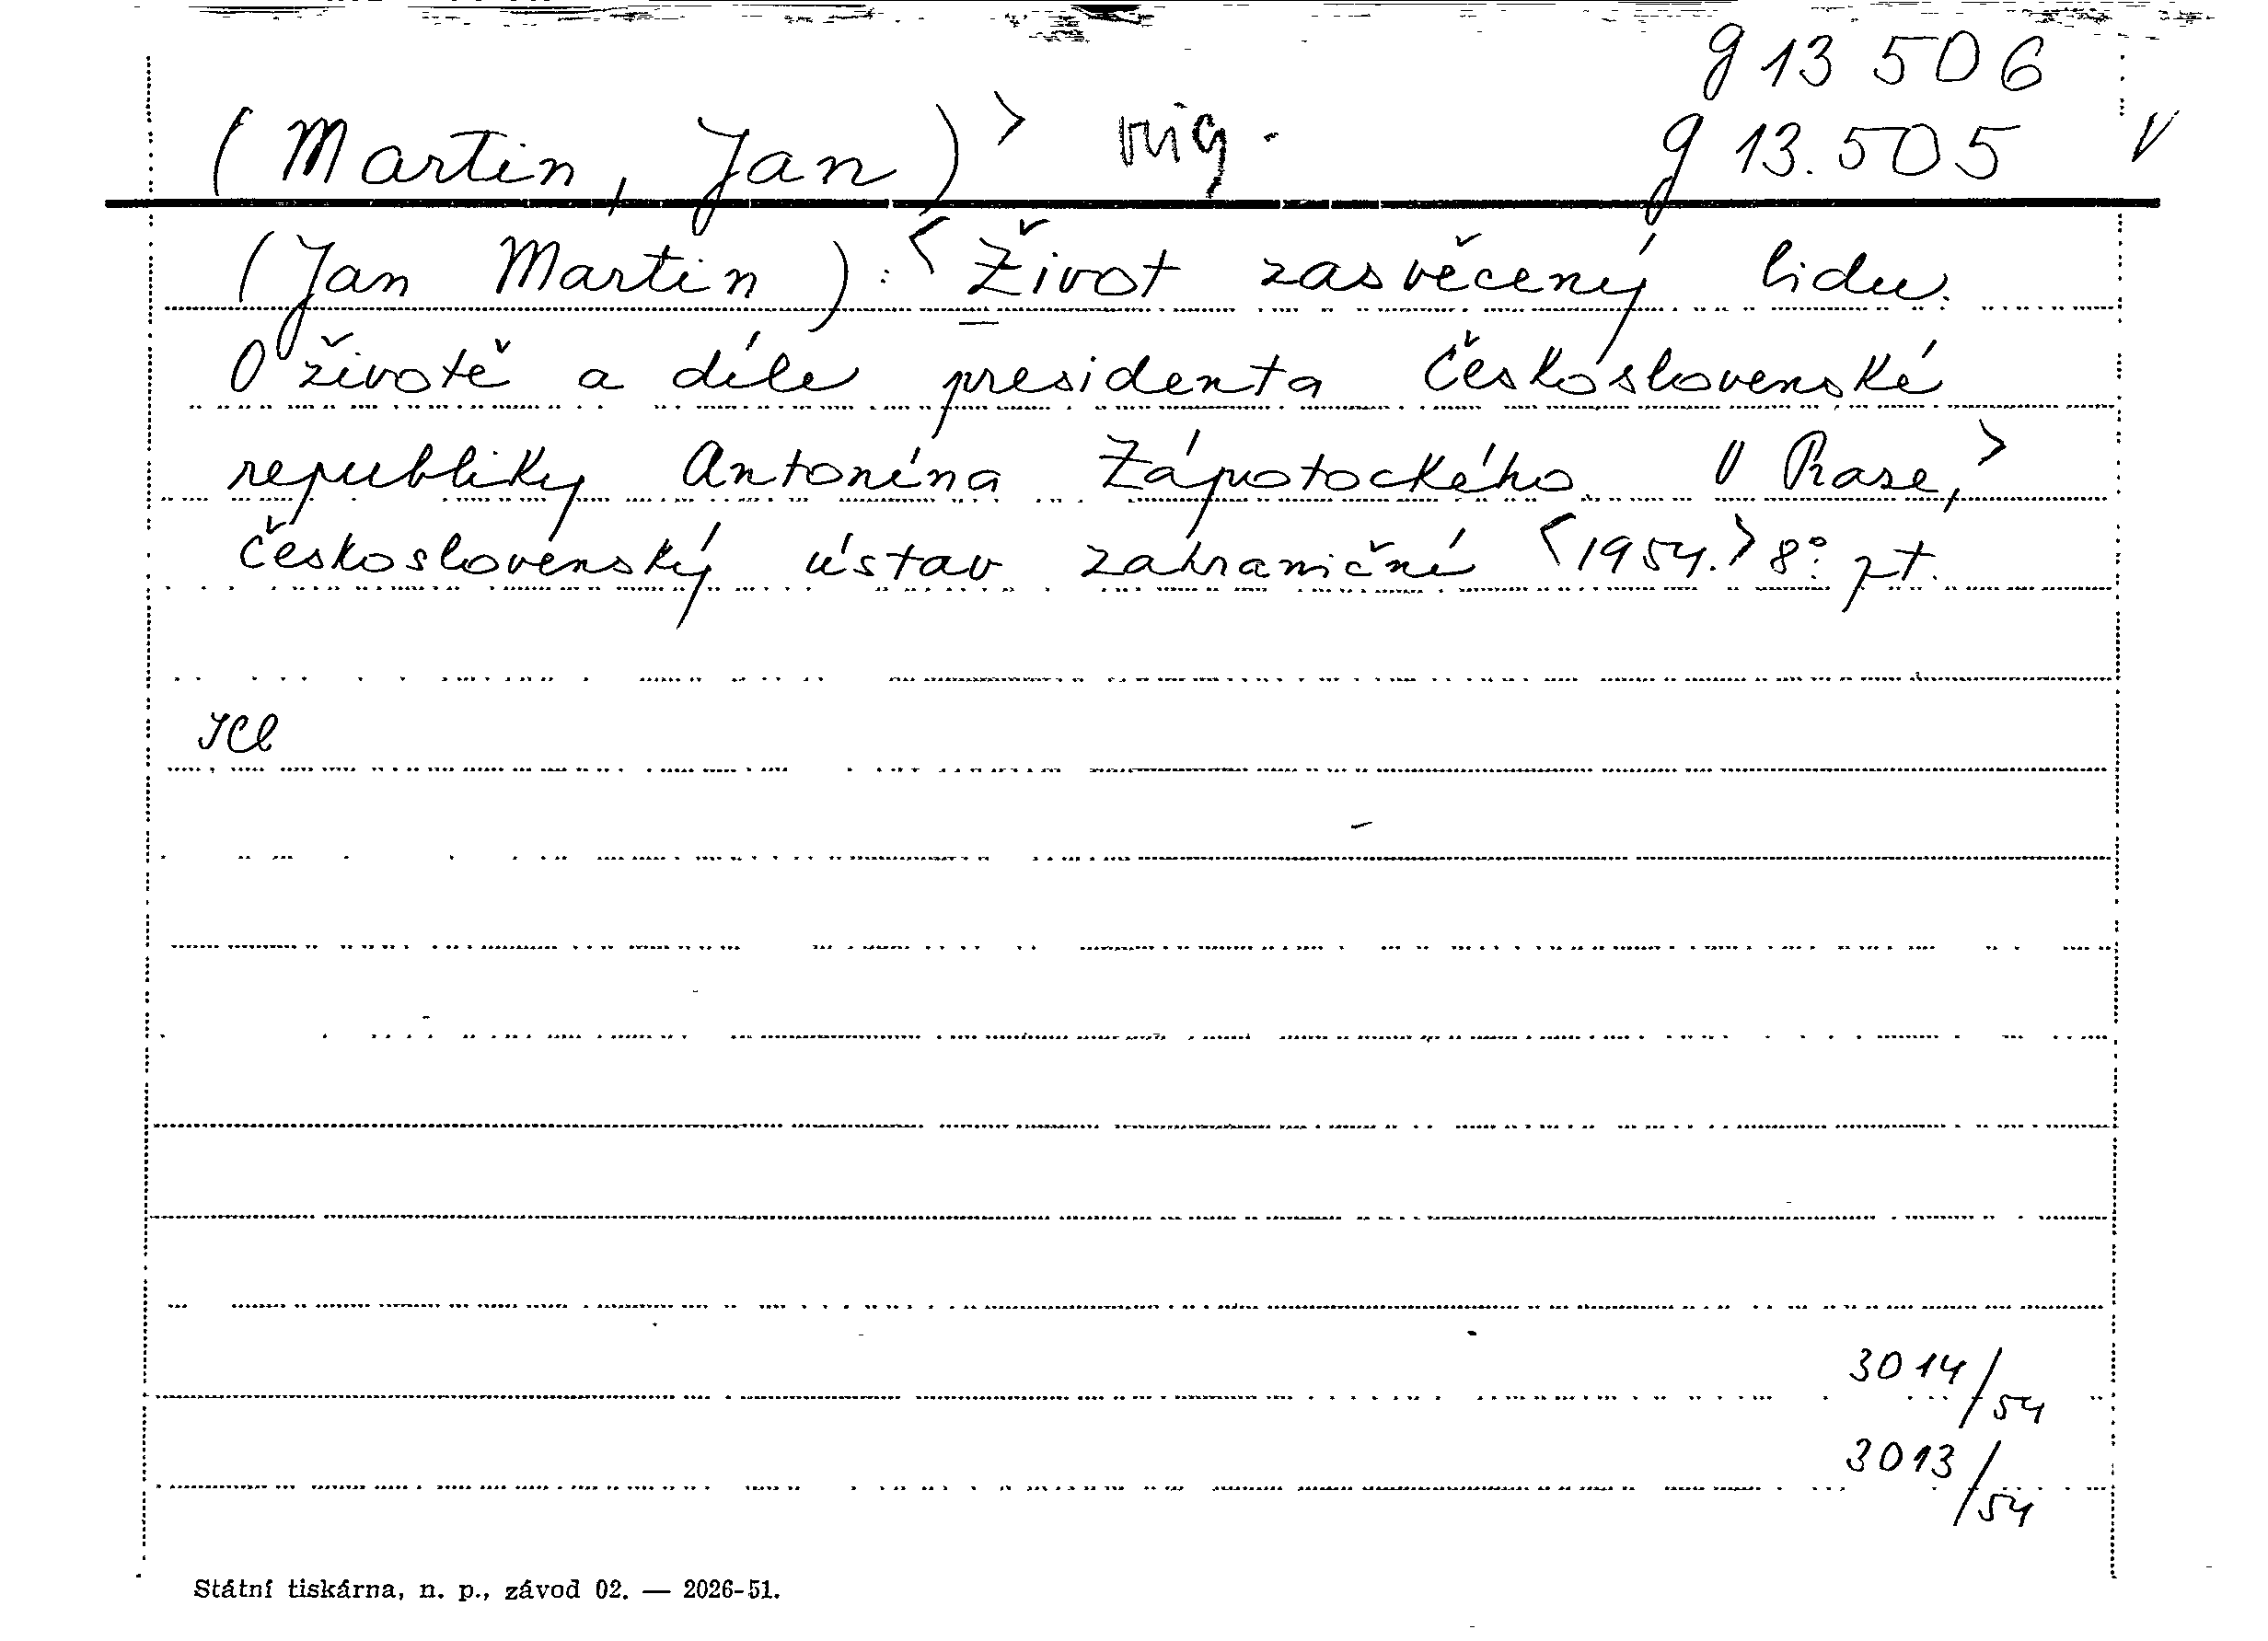 g 13 506
(Martin, Jan)> g 13.505 V
(Jan Martin): <Život zasvěcený lidu.
O životě a díle presidenta Československé
republiky Antonína Zápotockého. V Praze,>
Československý ústav zahraniční <1954.> 8° pt.
JCl
3014/54
3013/54
Státní tiskárna, n. p., závod 02. — 2026-51.